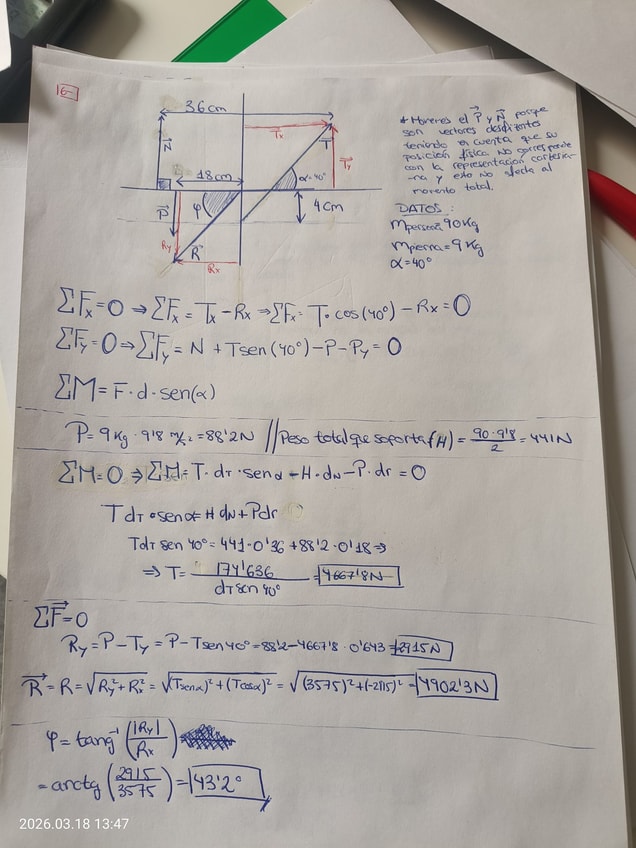 6-
36cm
Tx
N
T
Ty
18cm
α=40°
φ
P
4cm
Ry
R
Rx
* Movemos el P y N porque
son vectores deslizantes
teniendo en cuenta que su
posición física no corresponde
con la representación cartesia-
na y esto no afecta al
momento total.
DATOS:
mpersona=90Kg
mpierna=9Kg
α=40°
ΣFx=0 ⇒ ΣFx= Tx-Rx ⇒ ΣFx= T·cos(40°) - Rx = 0
ΣFy=0 ⇒ ΣFy = N + Tsen(40°)-P-Py = 0
ΣM= F·d·sen(α)
P= 9Kg · 9'8 m/s² = 88'2N // Peso total que soporta (H) = 90·9'8/2 = 441N
ΣM=0 ⇒ ΣM= T·dT·senα - H·dN - P·dr = 0
TdT·senα= H dN + Pdr
TdT sen 40° = 441·0'36 + 88'2·0'18 ⇒
⇒ T= 174'636/dT sen 40° = 4667'8N
ΣF=0
Ry = P - Ty = P - Tsen40° = 88'2 - 4667'8 · 0'643 = -2915N
R = R = √(Ry² + Rx²) = √((Tsenα)² + (Tcosα)²) = √((3575)² + (-2915)²) = 4902'3N
φ = tang⁻¹ (|Ry|/Rx)
= arctg (2915/3575) = 43'2°
2026.03.18 13:47